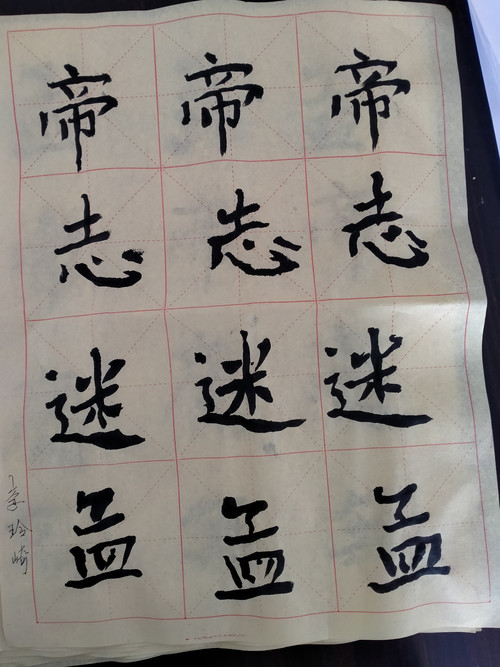 帝帝帝
志志志
迷迷迷
孟孟孟
李玲崎